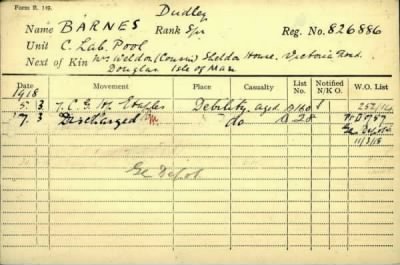 Form B. 149.
Dudley
Name BARNES Rank Spr Reg. No. 826886
Unit C. Lab. Pool
Next of Kin Mrs Weldon (Cousin) Sheldon House, Victoria Road.
Douglas Isle of Man
Date Movement Place Casualty List No. Notified N/K O. W.O. List
1918
5 3 7. C. G. H. Etaples Debility, aged
7. 3 Discharged do 28
Ge Depot
11/3/18
Ge Depot